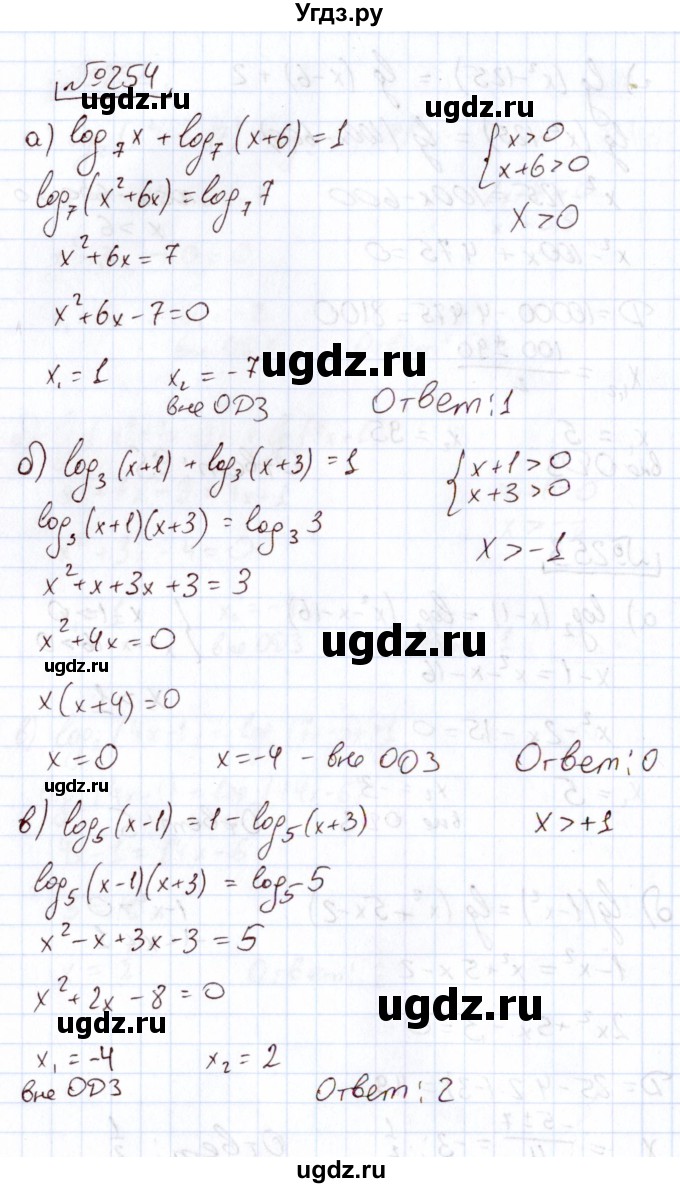 Угдз.ру
№254
а) log₇ x + log₇ (x+6) = 1 {x>0
x+6>0
log₇ (x²+6x) = log₇ 7 x>0
x²+6x = 7
x²+6x-7=0
ugdz.ru
x₁ = 1 x₂ = -7
вне ОДЗ Ответ: 1
б) log₃ (x+1) + log₃ (x+3) = 1 {x+1>0
x+3>0
log₃ (x+1)(x+3) = log₃ 3 x>-1
x²+x+3x+3 = 3
x²+4x=0 ugdz.ru
ugdz.ru
x(x+4)=0
x=0 x=-4 - вне ОДЗ Ответ: 0
в) log₅ (x-1) = 1 - log₅ (x+3) x>+1
log₅ (x-1)(x+3) = log₅ 5
x²-x+3x-3 = 5
x²+2x-8 = 0 ugdz.ru
ugdz.ru
x₁ = -4 x₂ = 2
вне ОДЗ Ответ: 2
ugdz.ru